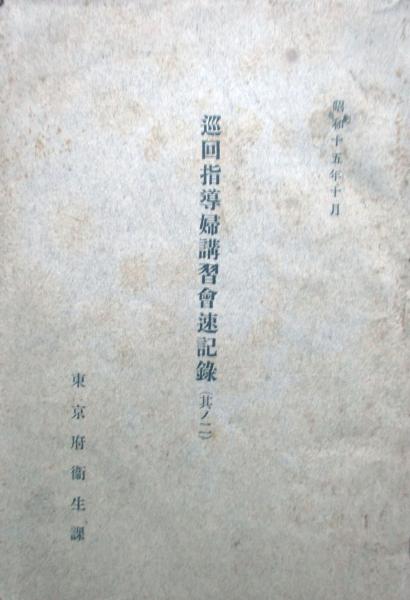 昭和十五年十月
巡回指導婦講習會速記錄(其ノ二)
東京府衞生課